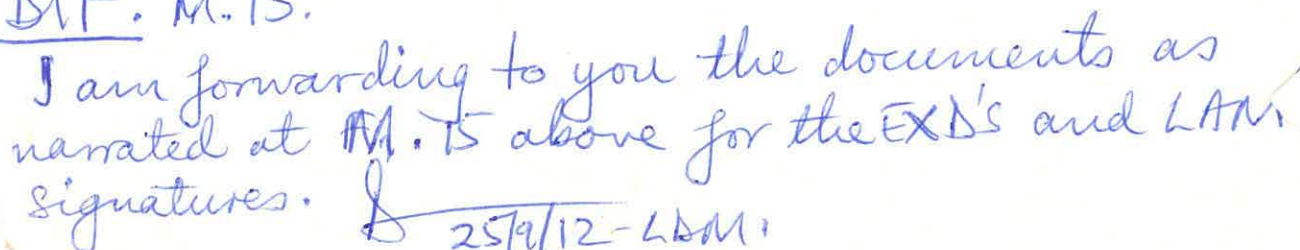 M.15.
I am forwarding to you the documents as
narrated at M.15 above for the EXD's and LAM
signatures.
25/9/12-LDM.